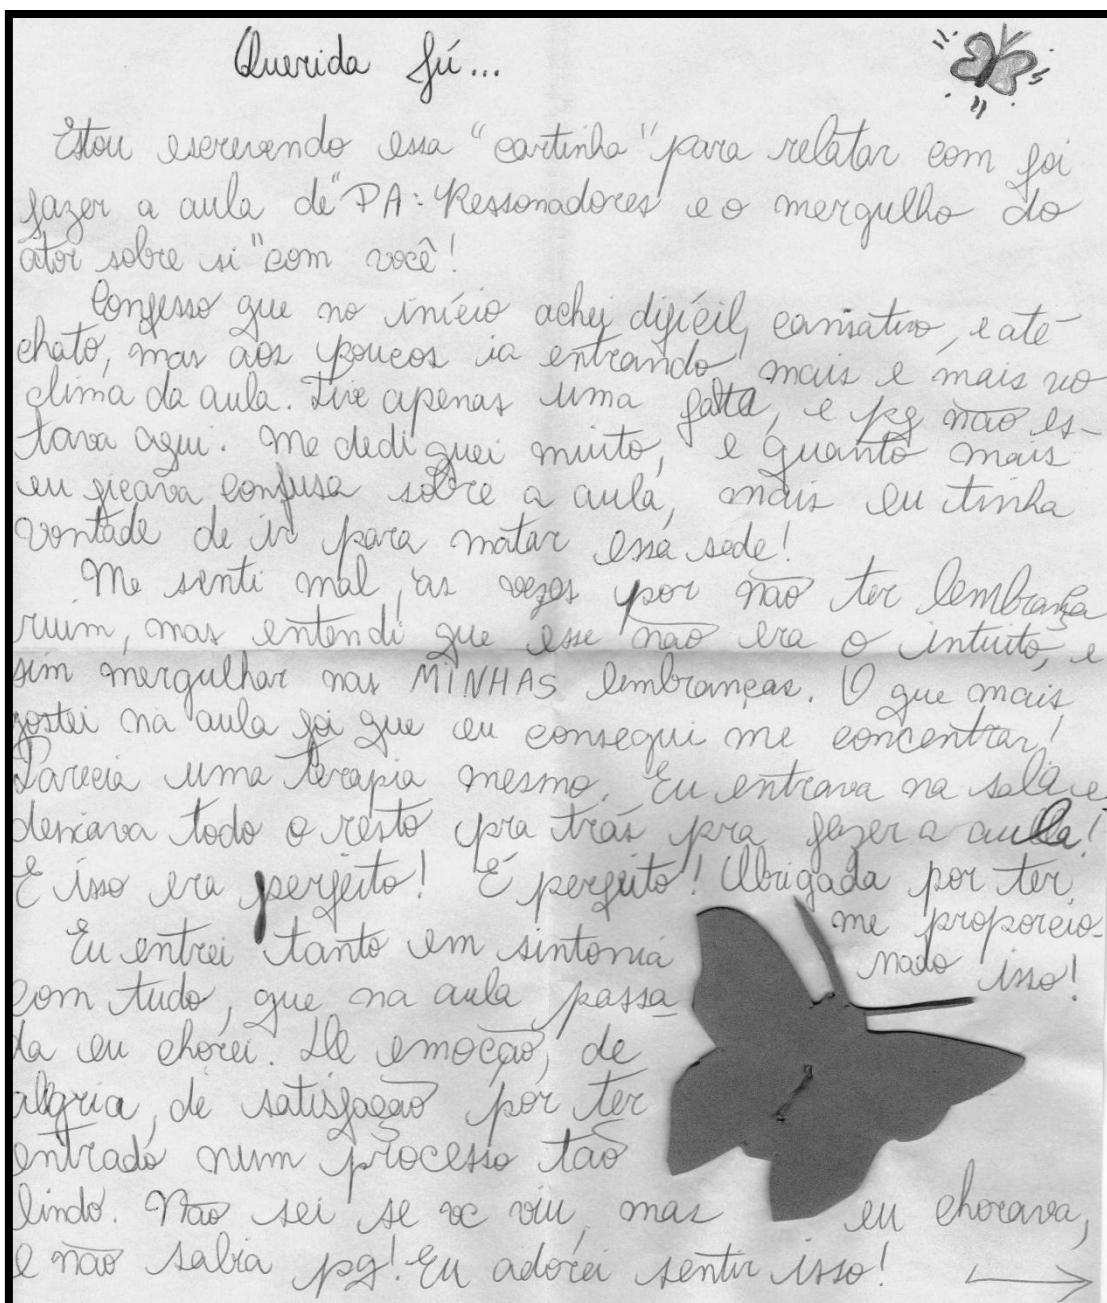 Querida Jú...
Estou escrevendo essa "cartinha" para relatar com foi
fazer a aula de "PA: Ressonadores e o mergulho do
ator sobre si" com você!
Confesso que no início achei difícil, cansativo, e até
chato, mas aos poucos ia entrando mais e mais no
clima da aula. Tive apenas uma falta, e pq não es-
tava aqui. Me dediquei muito, e quanto mais
eu ficava confusa sobre a aula, mais eu tinha
vontade de ir para matar essa sede!
Me senti mal, às vezes por não ter lembrança
ruim, mas entendi que esse não era o intuito, e
sim mergulhar nas MINHAS lembranças. O que mais
gostei na aula foi que eu consegui me concentrar!
Parecia uma terapia mesmo. Eu entrava na sala e
deixava todo o resto pra trás pra fazer a aula!
E isso era perfeito! É perfeito! Obrigada por ter
me proporcio-
nado isso!
Eu entrei tanto em sintonia
com tudo, que na aula passa
da eu chorei. De emoção, de
alegria, de satisfação por ter
entrado num processo tão
lindo. Não sei se vc viu, mas eu chorava,
e não sabia pq! Eu adorei sentir isso!